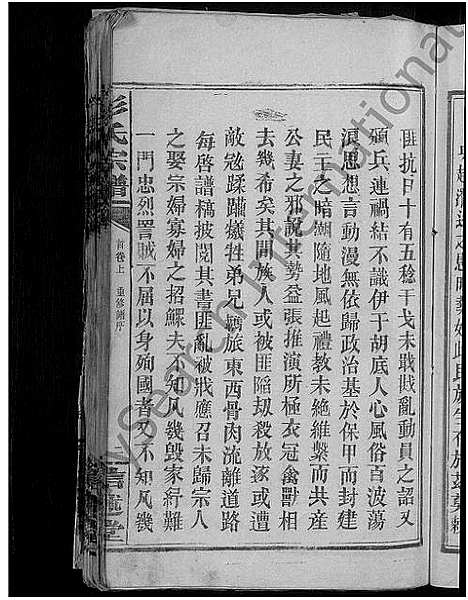 匪抗日十有五稔干戈未戢戡亂動員之詔又
頒兵連禍結不識伊于胡底人心風俗百波蕩
浪思想言動漫無依歸政治基於保甲而封建
民主之暗潮隨地風起禮教未絶維繫而共産
公妻之邪說其勢益張推演所極衣冠禽獸相
去幾希矣其間族人或被匪陷刼殺放逐或遭
敵寇蹂躪犧牲弟兄羈旅東西骨肉流離道路
每啓譜稿披閱其書匪亂被戕應召未歸宗人
之娶宗婦寡婦之招鰥夫不知凡幾毀家紓難
一門忠烈詈賊不屈以身殉國者又不知凡幾
彭氏宗譜
首卷上 重修譜序
堂
MySearch International